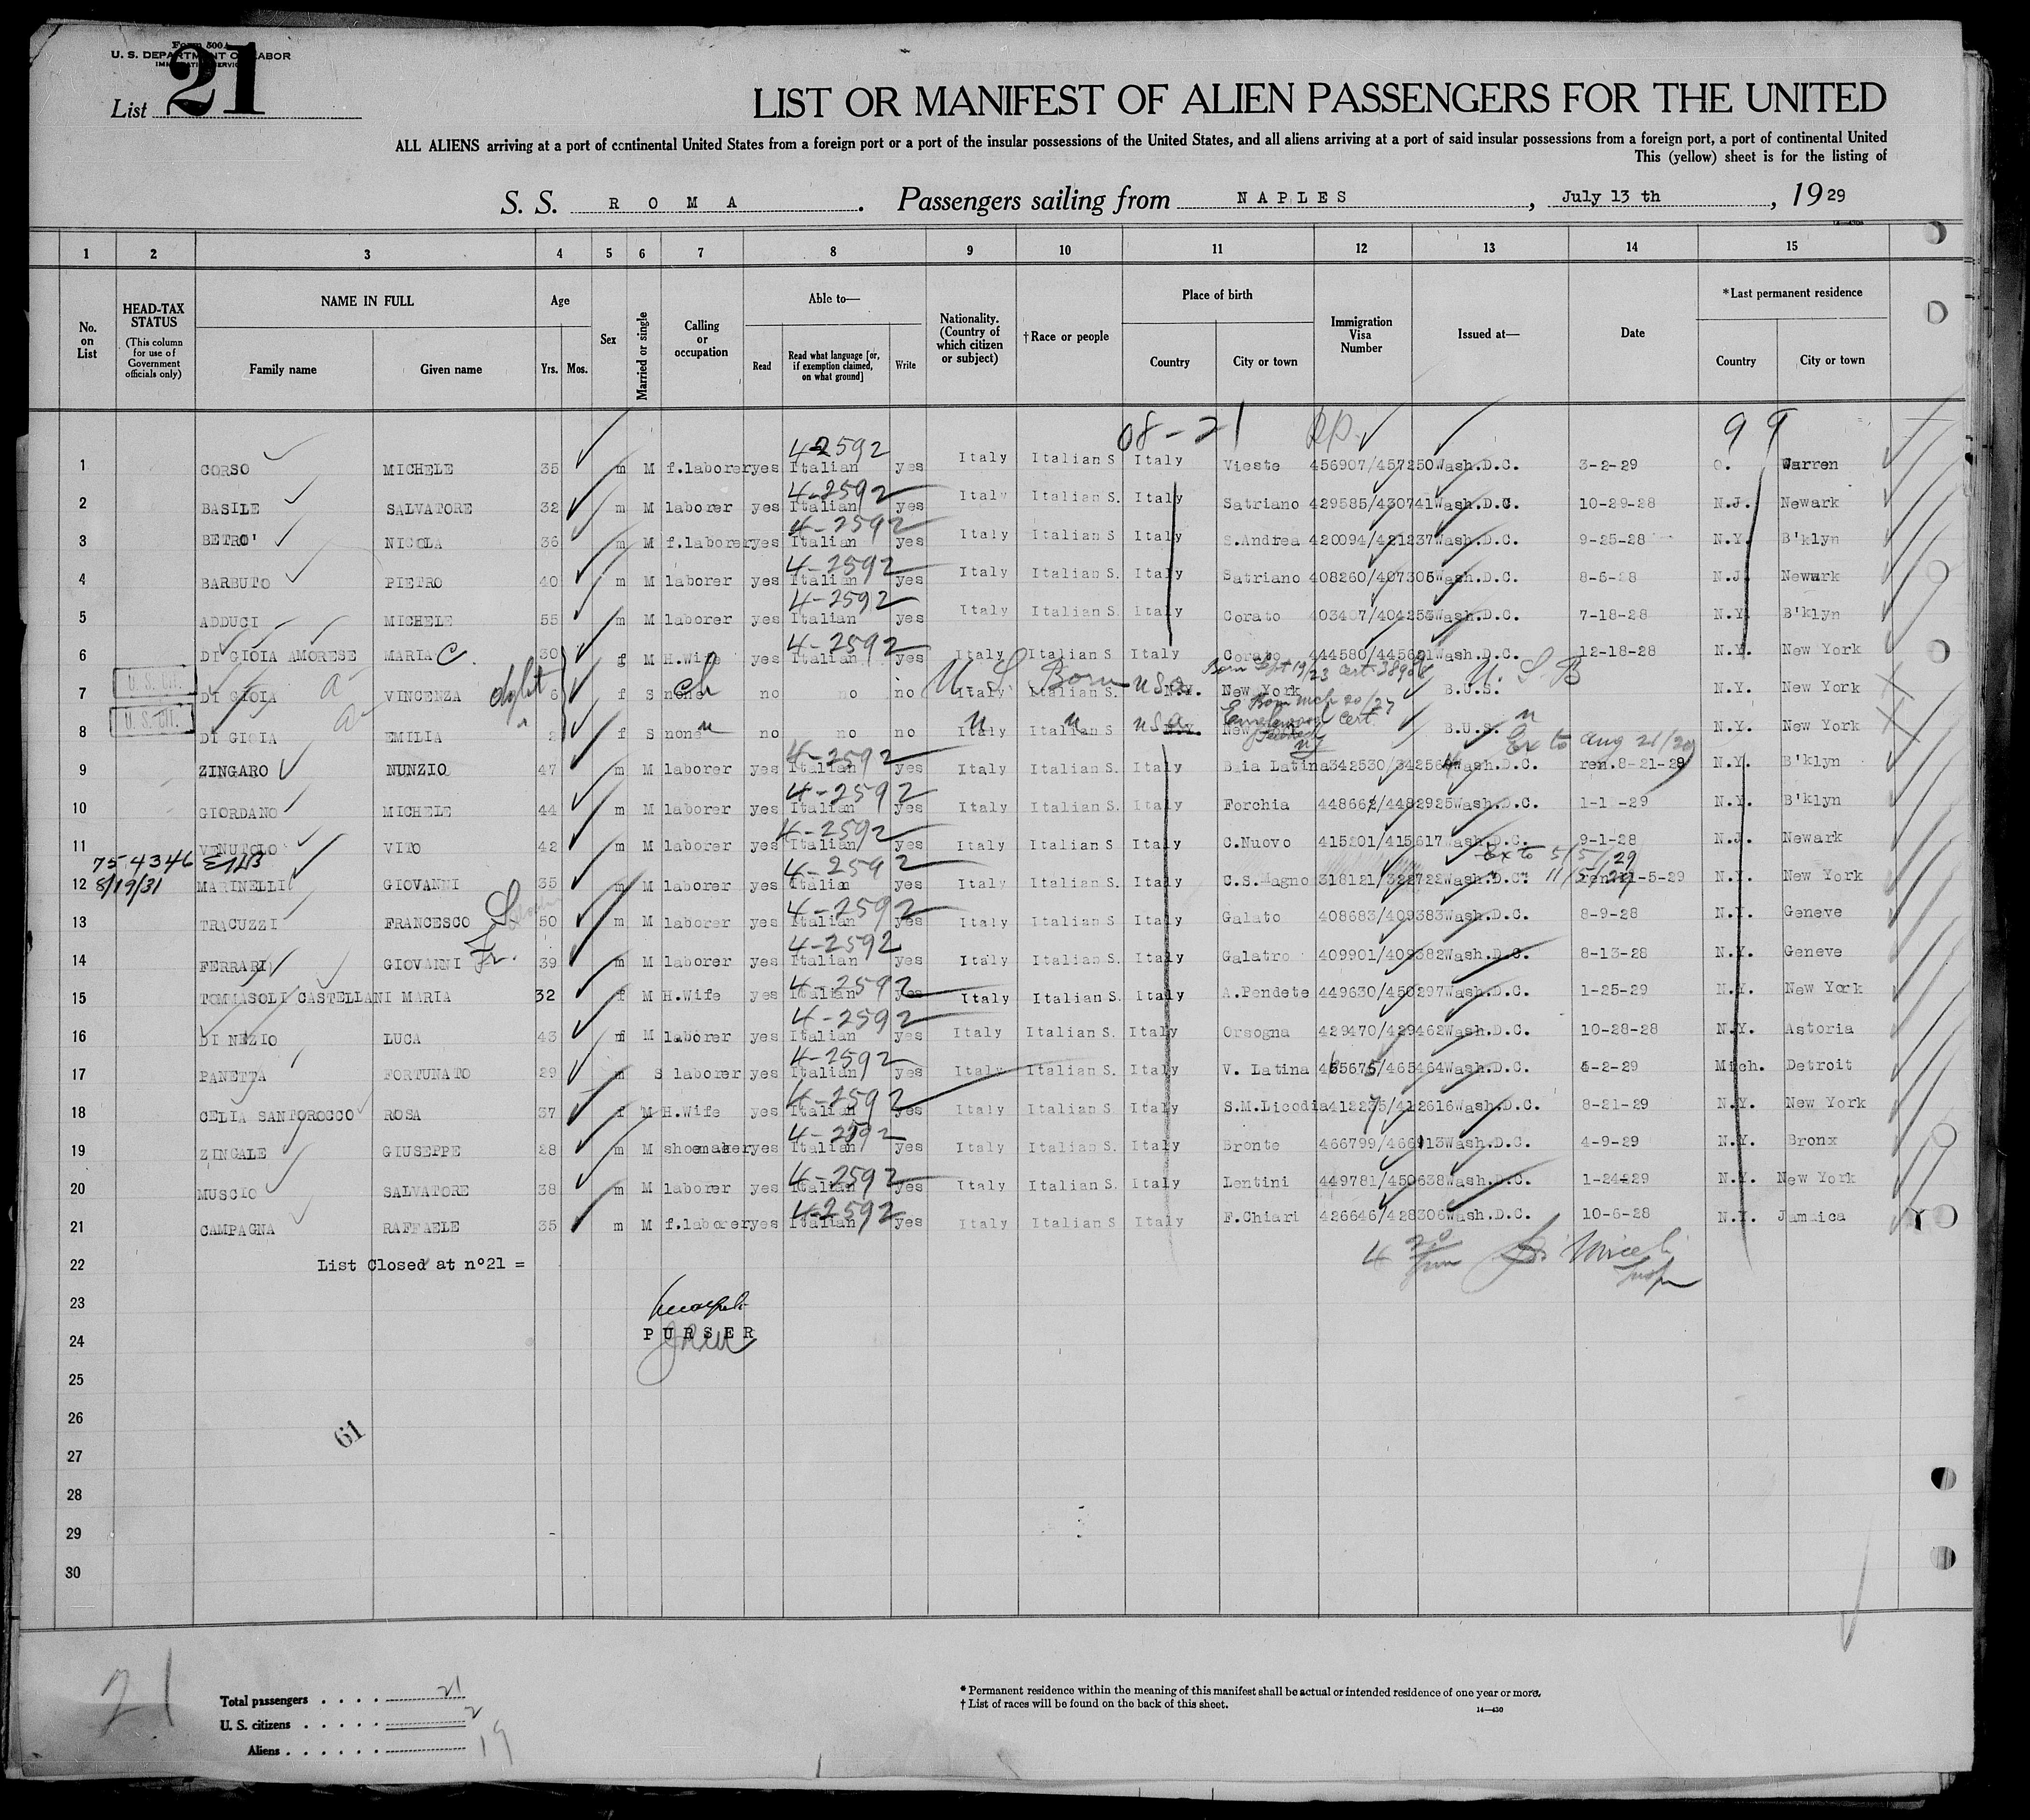 Form 500 A
U. S. DEPARTMENT OF LABOR
IMMIGRATION SERVICE
List 21
LIST OR MANIFEST OF ALIEN PASSENGERS FOR THE UNITED
ALL ALIENS arriving at a port of continental United States from a foreign port or a port of the insular possessions of the United States, and all aliens arriving at a port of said insular possessions from a foreign port, a port of continental United
This (yellow) sheet is for the listing of
S. S. R O M A . Passengers sailing from NAPLES , July 13 th , 19 29
1 2 3 4 5 6 7 8 9 10 11 12 13 14 15
No. on List
HEAD-TAX STATUS (This column for use of Government officials only)
NAME IN FULL Family name Given name
Age Yrs. Mos.
Sex
Married or single
Calling or occupation
Able to— Read Read what language [or, if exemption claimed, on what ground] Write
Nationality. (Country of which citizen or subject)
†Race or people
Place of birth Country City or town
Immigration Visa Number
Issued at—
Date
*Last permanent residence Country City or town
08-21 99
1 CORSO MICHELE 35 m M f.laborer yes 4-2592 Italian yes Italy Italian S Italy Vieste 456907/457250 Wash.D.C. 3-2-29 O. Warren
2 BASILE SALVATORE 32 m M laborer yes 4-2592 Italian yes Italy Italian S. Italy Satriano 429585/430741 Wash.D.C. 10-29-28 N.J. Newark
3 BETRO' NICOLA 36 m M f.laborer yes 4-2592 Italian yes Italy Italian S Italy S.Andrea 420094/421237 Wash.D.C. 9-25-28 N.Y. B'klyn
4 BARBUTO PIETRO 40 m M laborer yes 4-2592 Italian yes Italy Italian S. Italy Satriano 408260/407305 Wash.D.C. 8-6-28 N.J. Newark
5 ADDUCI MICHELE 55 m M laborer yes 4-2592 Italian yes Italy Italian S. Italy Corato 403407/404254 Wash.D.C. 7-18-28 N.Y. B'klyn
6 DI GIOIA AMORESE MARIA C. 30 f M H.Wife yes 4-2592 Italian yes Italy Italian S Italy Corato 444580/445601 Wash.D.C. 12-18-28 N.Y. New York
Born Sept 19/23 Cert 38908
7 U. S. CIT. DI GIOIA VINCENZA 6 f S none ch no no no Italy Italian S. U. S. Born USA N.Y. New York B.U.S. U. S. B N.Y. New York
Born Mch 20/27
8 U. S. CIT. DI GIOIA EMILIA 2 f S none no no no Italy Italian S USA Englewood Cert. B.U.S. N.Y. New York
Ex to Aug 21/29
9 ZINGARO NUNZIO 47 m M laborer yes 4-2592 Italian yes Italy Italian S. Italy Baia Latina 342530/34256 Wash.D.C. ren.8-21-29 N.Y. B'klyn
10 GIORDANO MICHELE 44 m M laborer yes 4-2592 Italian yes Italy Italian S. Italy Forchia 448662/4482925 Wash.D.C. 1-1 -29 N.Y. B'klyn
11 VENUTOLO VITO 42 m M laborer yes 4-2592 Italian yes Italy Italian S. Italy C.Nuovo 415201/415617 Wash.D.C. 9-1-28 N.J. Newark
75-4346
Ex to 5/5/29
12 8/19/31 MARINELLI GIOVANNI 35 m M laborer yes 4-2592 Italian yes Italy Italian S. Italy C.S.Magno 318121/322722 Wash.D.C. 11/5/29 ren.11-5-29 N.Y. New York
13 TRACUZZI FRANCESCO 50 m M laborer yes 4-2592 Italian yes Italy Italian S. Italy Galato 408683/409383 Wash.D.C. 8-9-28 N.Y. Geneve
14 FERRARI GIOVANNI Fr. 39 m M laborer yes 4-2592 Italian yes Italy Italian S. Italy Galatro 409901/409382 Wash.D.C. 8-13-28 N.Y. Geneve
15 TOMMASOLI CASTELLANI MARIA 32 f M H.Wife yes 4-2592 Italian yes Italy Italian S. Italy A.Pendete 449630/450297 Wash.D.C. 1-25-29 N.Y. New York
16 DI NEZIO LUCA 43 m M laborer yes 4-2592 Italian yes Italy Italian S. Italy Orsogna 429470/429462 Wash.D.C. 10-28-28 N.Y. Astoria
17 PANETTA FORTUNATO 29 m S laborer yes 4-2592 Italian yes Italy Italian S. Italy V. Latina 465675/465464 Wash.D.C. 4-2-29 Mich. Detroit
18 CELIA SANTOROCCO ROSA 37 f M H.Wife yes 4-2592 Italian yes Italy Italian S. Italy S.M.Licodia 412275/412616 Wash.D.C. 8-21-29 N.Y. New York
19 ZINGALE GIUSEPPE 28 m M shoemaker yes 4-2592 Italian yes Italy Italian S. Italy Bronte 466799/466913 Wash.D.C. 4-9-29 N.Y. Bronx
20 MUSCIO SALVATORE 38 m M laborer yes 4-2592 Italian yes Italy Italian S. Italy Lentini 449781/450638 Wash.D.C. 1-24-29 N.Y. New York
21 CAMPAGNA RAFFAELE 35 m M f.laborer yes 4-2592 Italian yes Italy Italian S Italy F.Chiari 426646/428306 Wash.D.C. 10-6-28 N.Y. Jamaica
22 List Closed at n°21 =
23
PURSER
24
25
26
61
27
28
29
30
21
Total passengers . . . . 21
U. S. citizens . . . . . 2
Aliens . . . . . . 19
* Permanent residence within the meaning of this manifest shall be actual or intended residence of one year or more.
† List of races will be found on the back of this sheet.
14—430